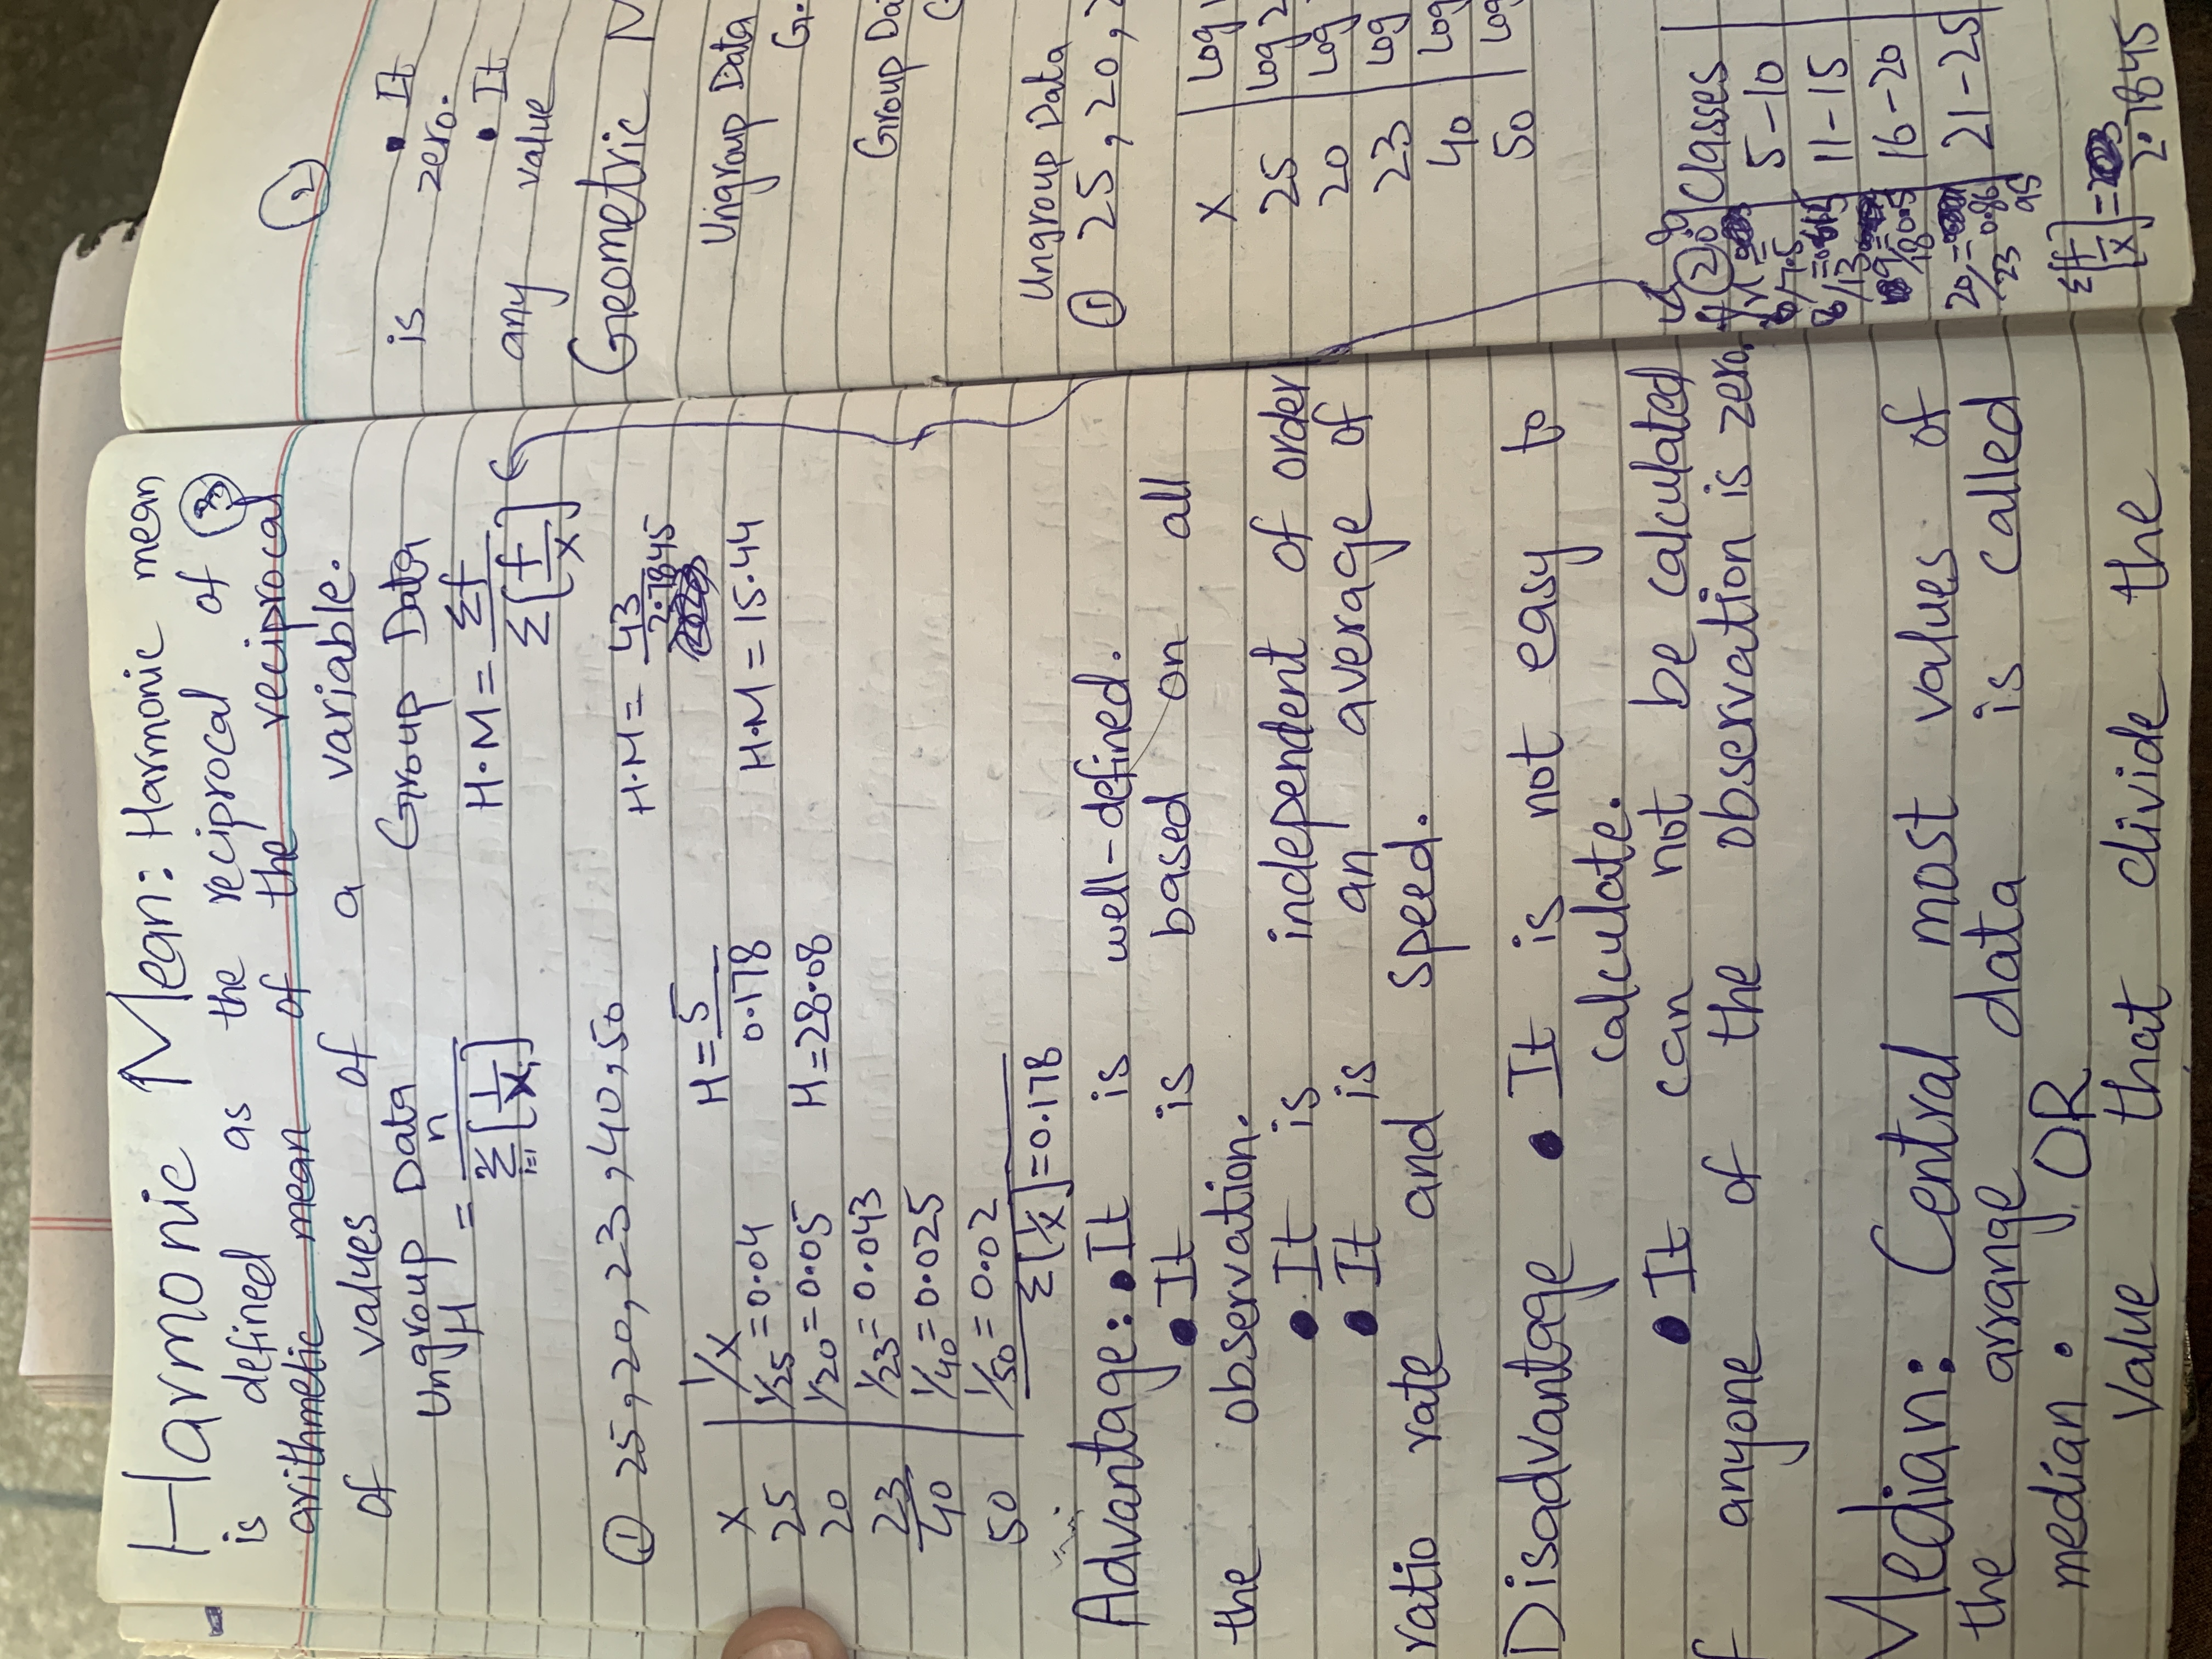 Harmonic Mean: Harmonic mean
is defined as the reciprocal of ③
arithmetic mean of the reciprocal
of values of a variable.
Ungroup Data
H = n / Σ i=1 [1/Xi]
Group Data
H.M = Σf / Σ[f/x]
① 25, 20, 23, 40, 50
X | 1/X
25 | 1/25 = 0.04
20 | 1/20 = 0.05
23 | 1/23 = 0.043
40 | 1/40 = 0.025
50 | 1/50 = 0.02
Σ[1/X] = 0.178
H = 5/0.178
H = 28.08
H.M = 43/2.7845
H.M = 15.44
Advantage: • It is well-defined.
• It is based on all
the observation.
• It is independent of order
• It is an average of
ratio rate and speed.
Disadvantage • It is not easy to
calculate.
• It can not be calculated
f anyone of the observation is zero.
Median: Central most values of
the arrange data is called
median. OR
Value that divide the
②
• It
is zero.
• It
any value
Geometric M
Ungroup Data
G.
Group Da
G
Ungroup Data
① 25, 20, 2
X | Log
25 | Log 2
20 | Log
23 | Log
40 | Log
50 | Log
② Classes
5-10
6/7.5
11-15
8/13 = 0.615
16-20
9/18
21-25
20/23 = 0.8695
Σ[f/x] = 2.7845